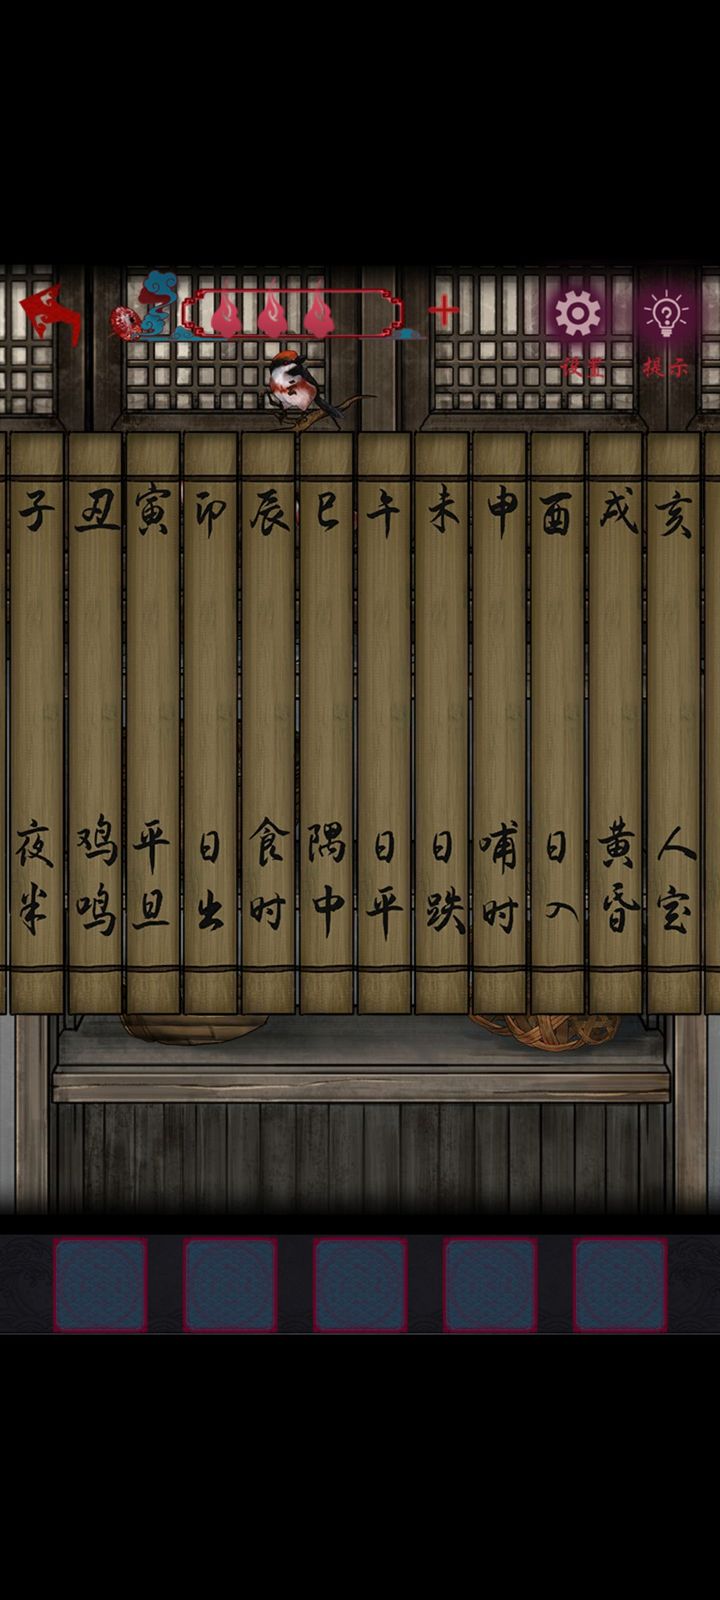 设置
提示
子 丑 寅 卯 辰 巳 午 未 申 酉 戌 亥
夜半 鸡鸣 平旦 日出 食时 隅中 日平 日跌 哺时 日入 黄昏 人定